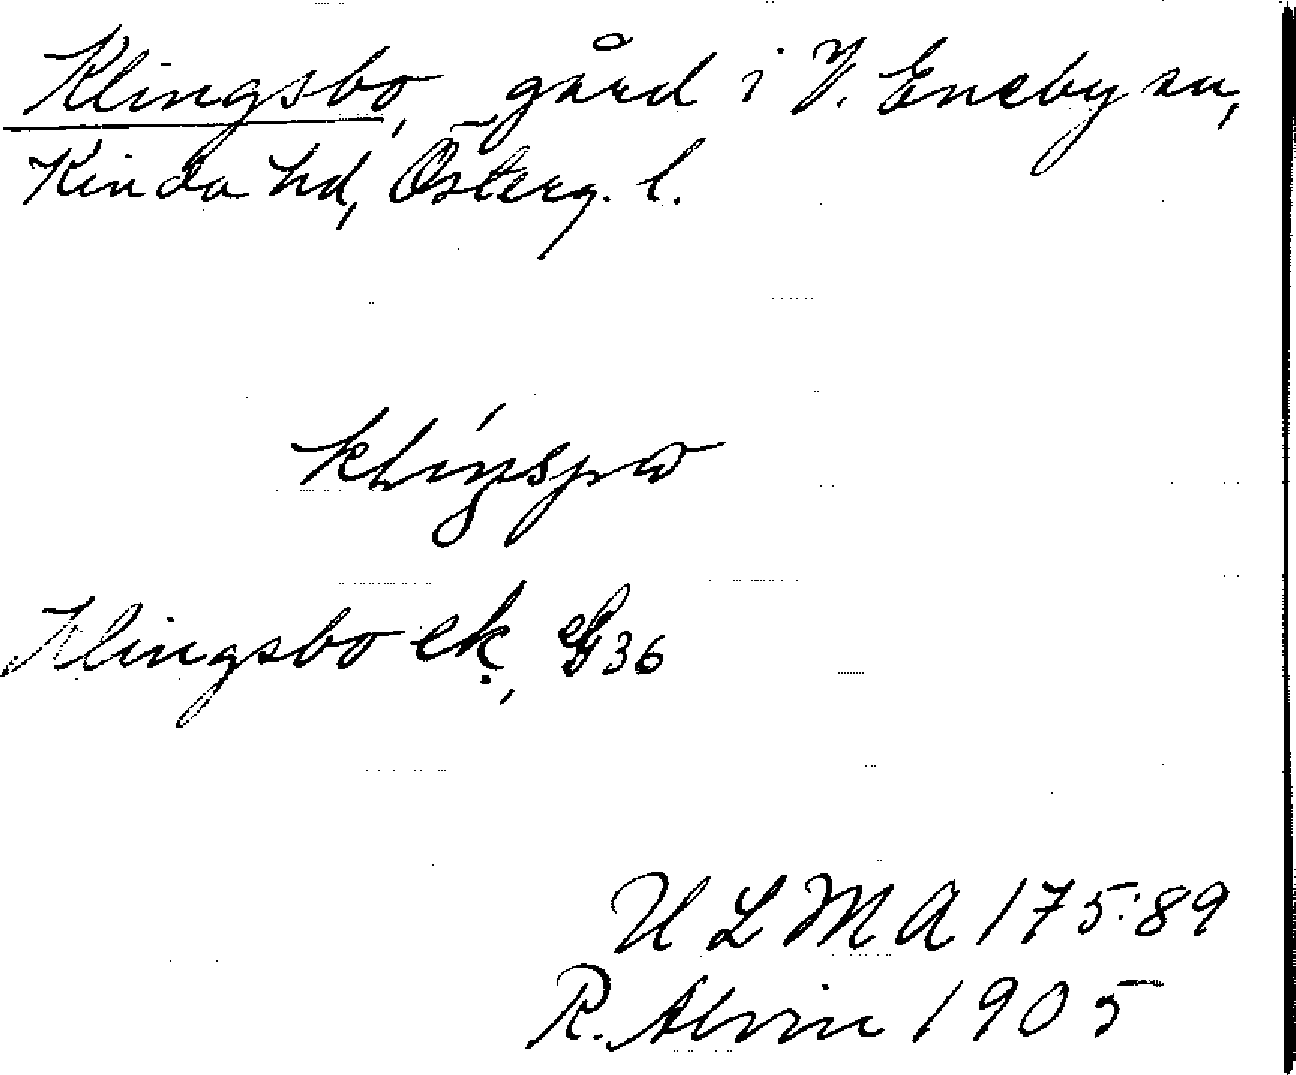 Klingsbo, gård i V. Eneby sn,
Kinda hd, Österg. l.
Klingsbo ek.,
ULMA 175:89
R. Alvin 1905